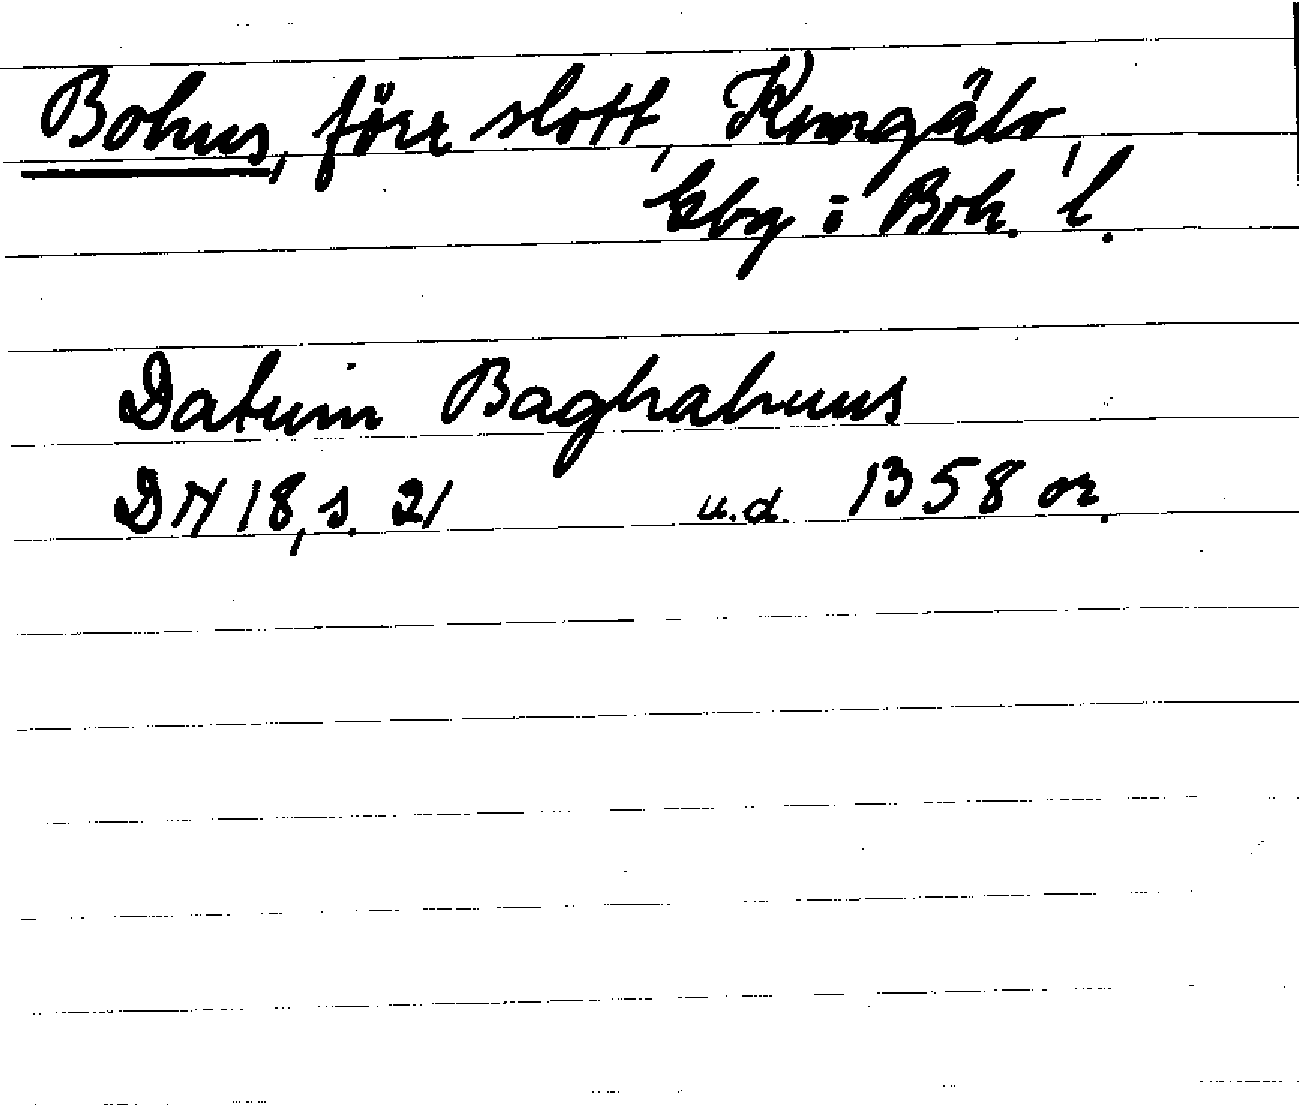 Bohus, förr slott, Kungälv,
kbg i Boh. l.
Datum Baghahuus
DN 18, s. 21 u.d. 1358 or.